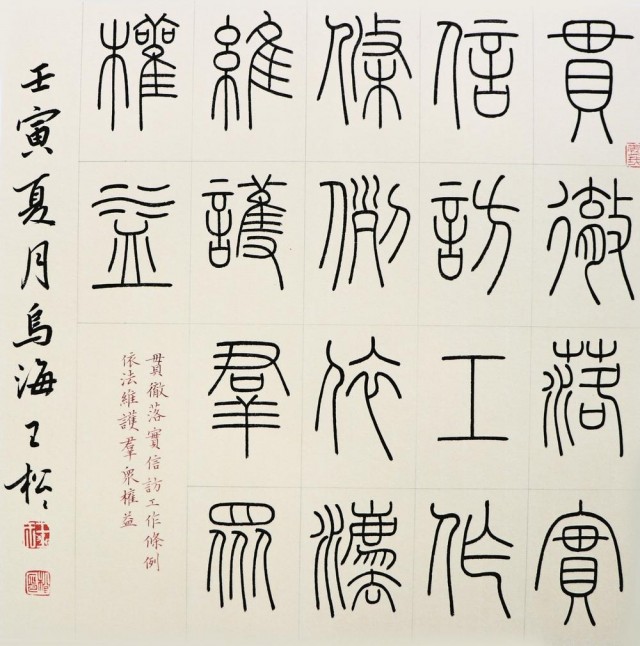 貫徹落實
信訪工作
條例依灋
維護羣眾
權益
貫徹落實信訪工作條例
依法維護羣眾權益
壬寅夏月烏海王松